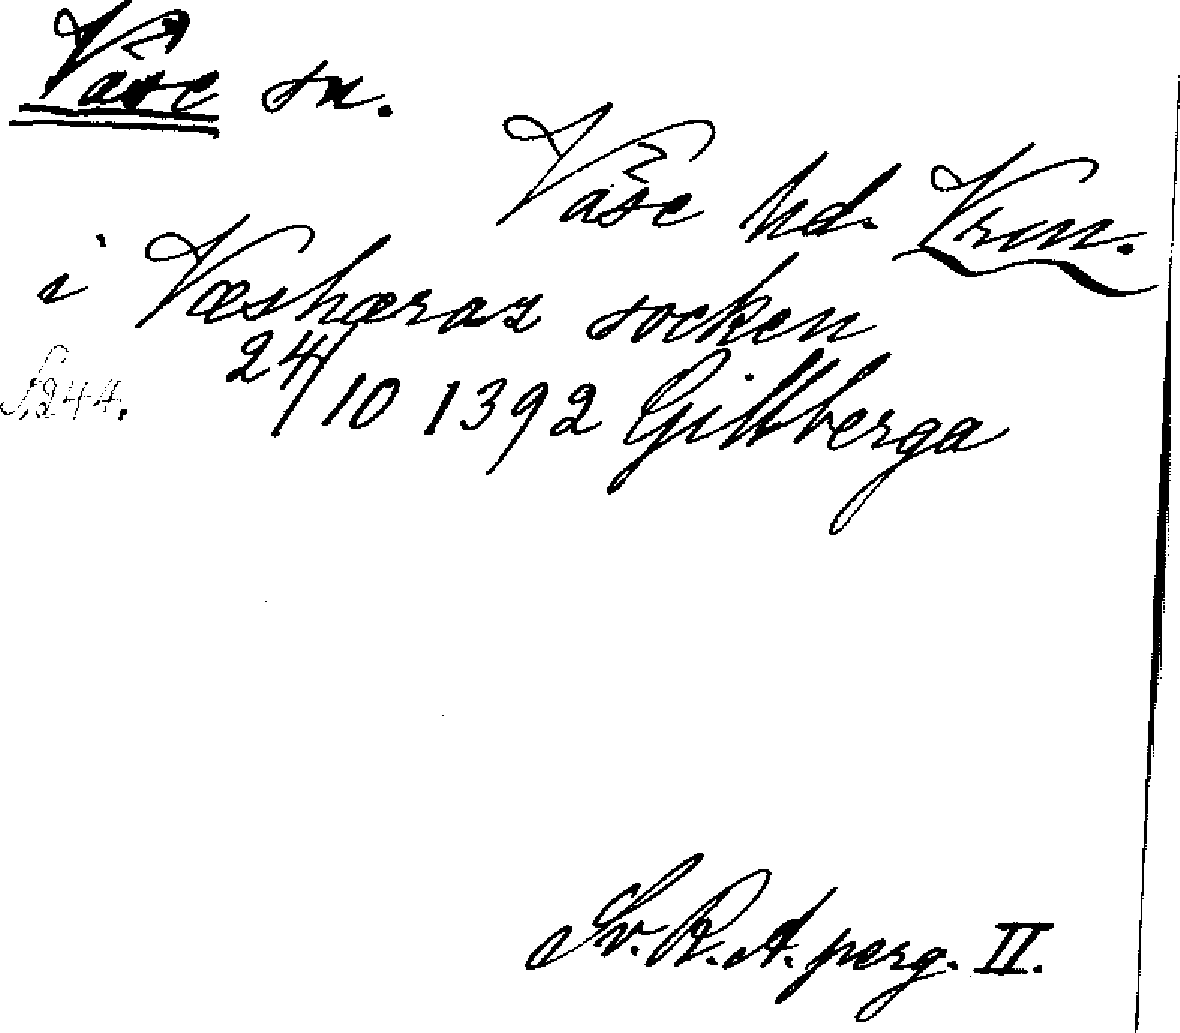 Väse sn.
Väse hd. Vrm.
i Væshæraz socken
S. 244.
24/10 1392 Gillberga
Sv. R. A. perg. II.